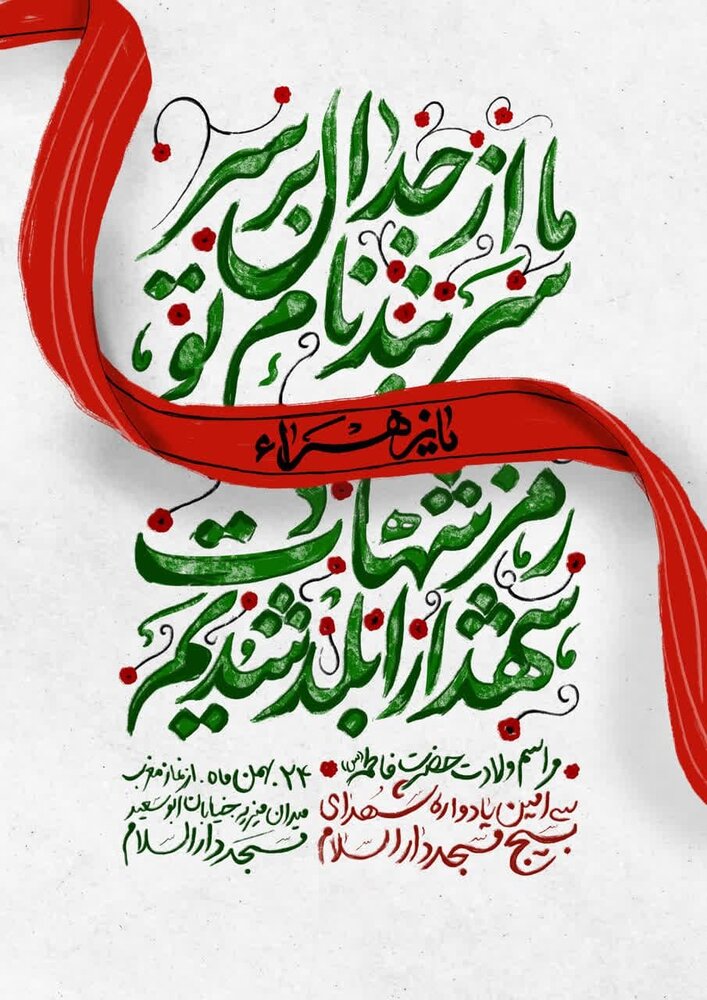 ما از جدال بر سر
سربند نام تو
یا زهراء
رمز شهادت
شهدا را بلد شدیم
مراسم ولادت حضرت فاطمه (س)
سی امین یادواره شهدای
بسیج مسجد دارالسلام
۲۴ بهمن ماه . از نماز مغرب
میدان منیریه خیابان ابوسعید
مسجد دارالسلام